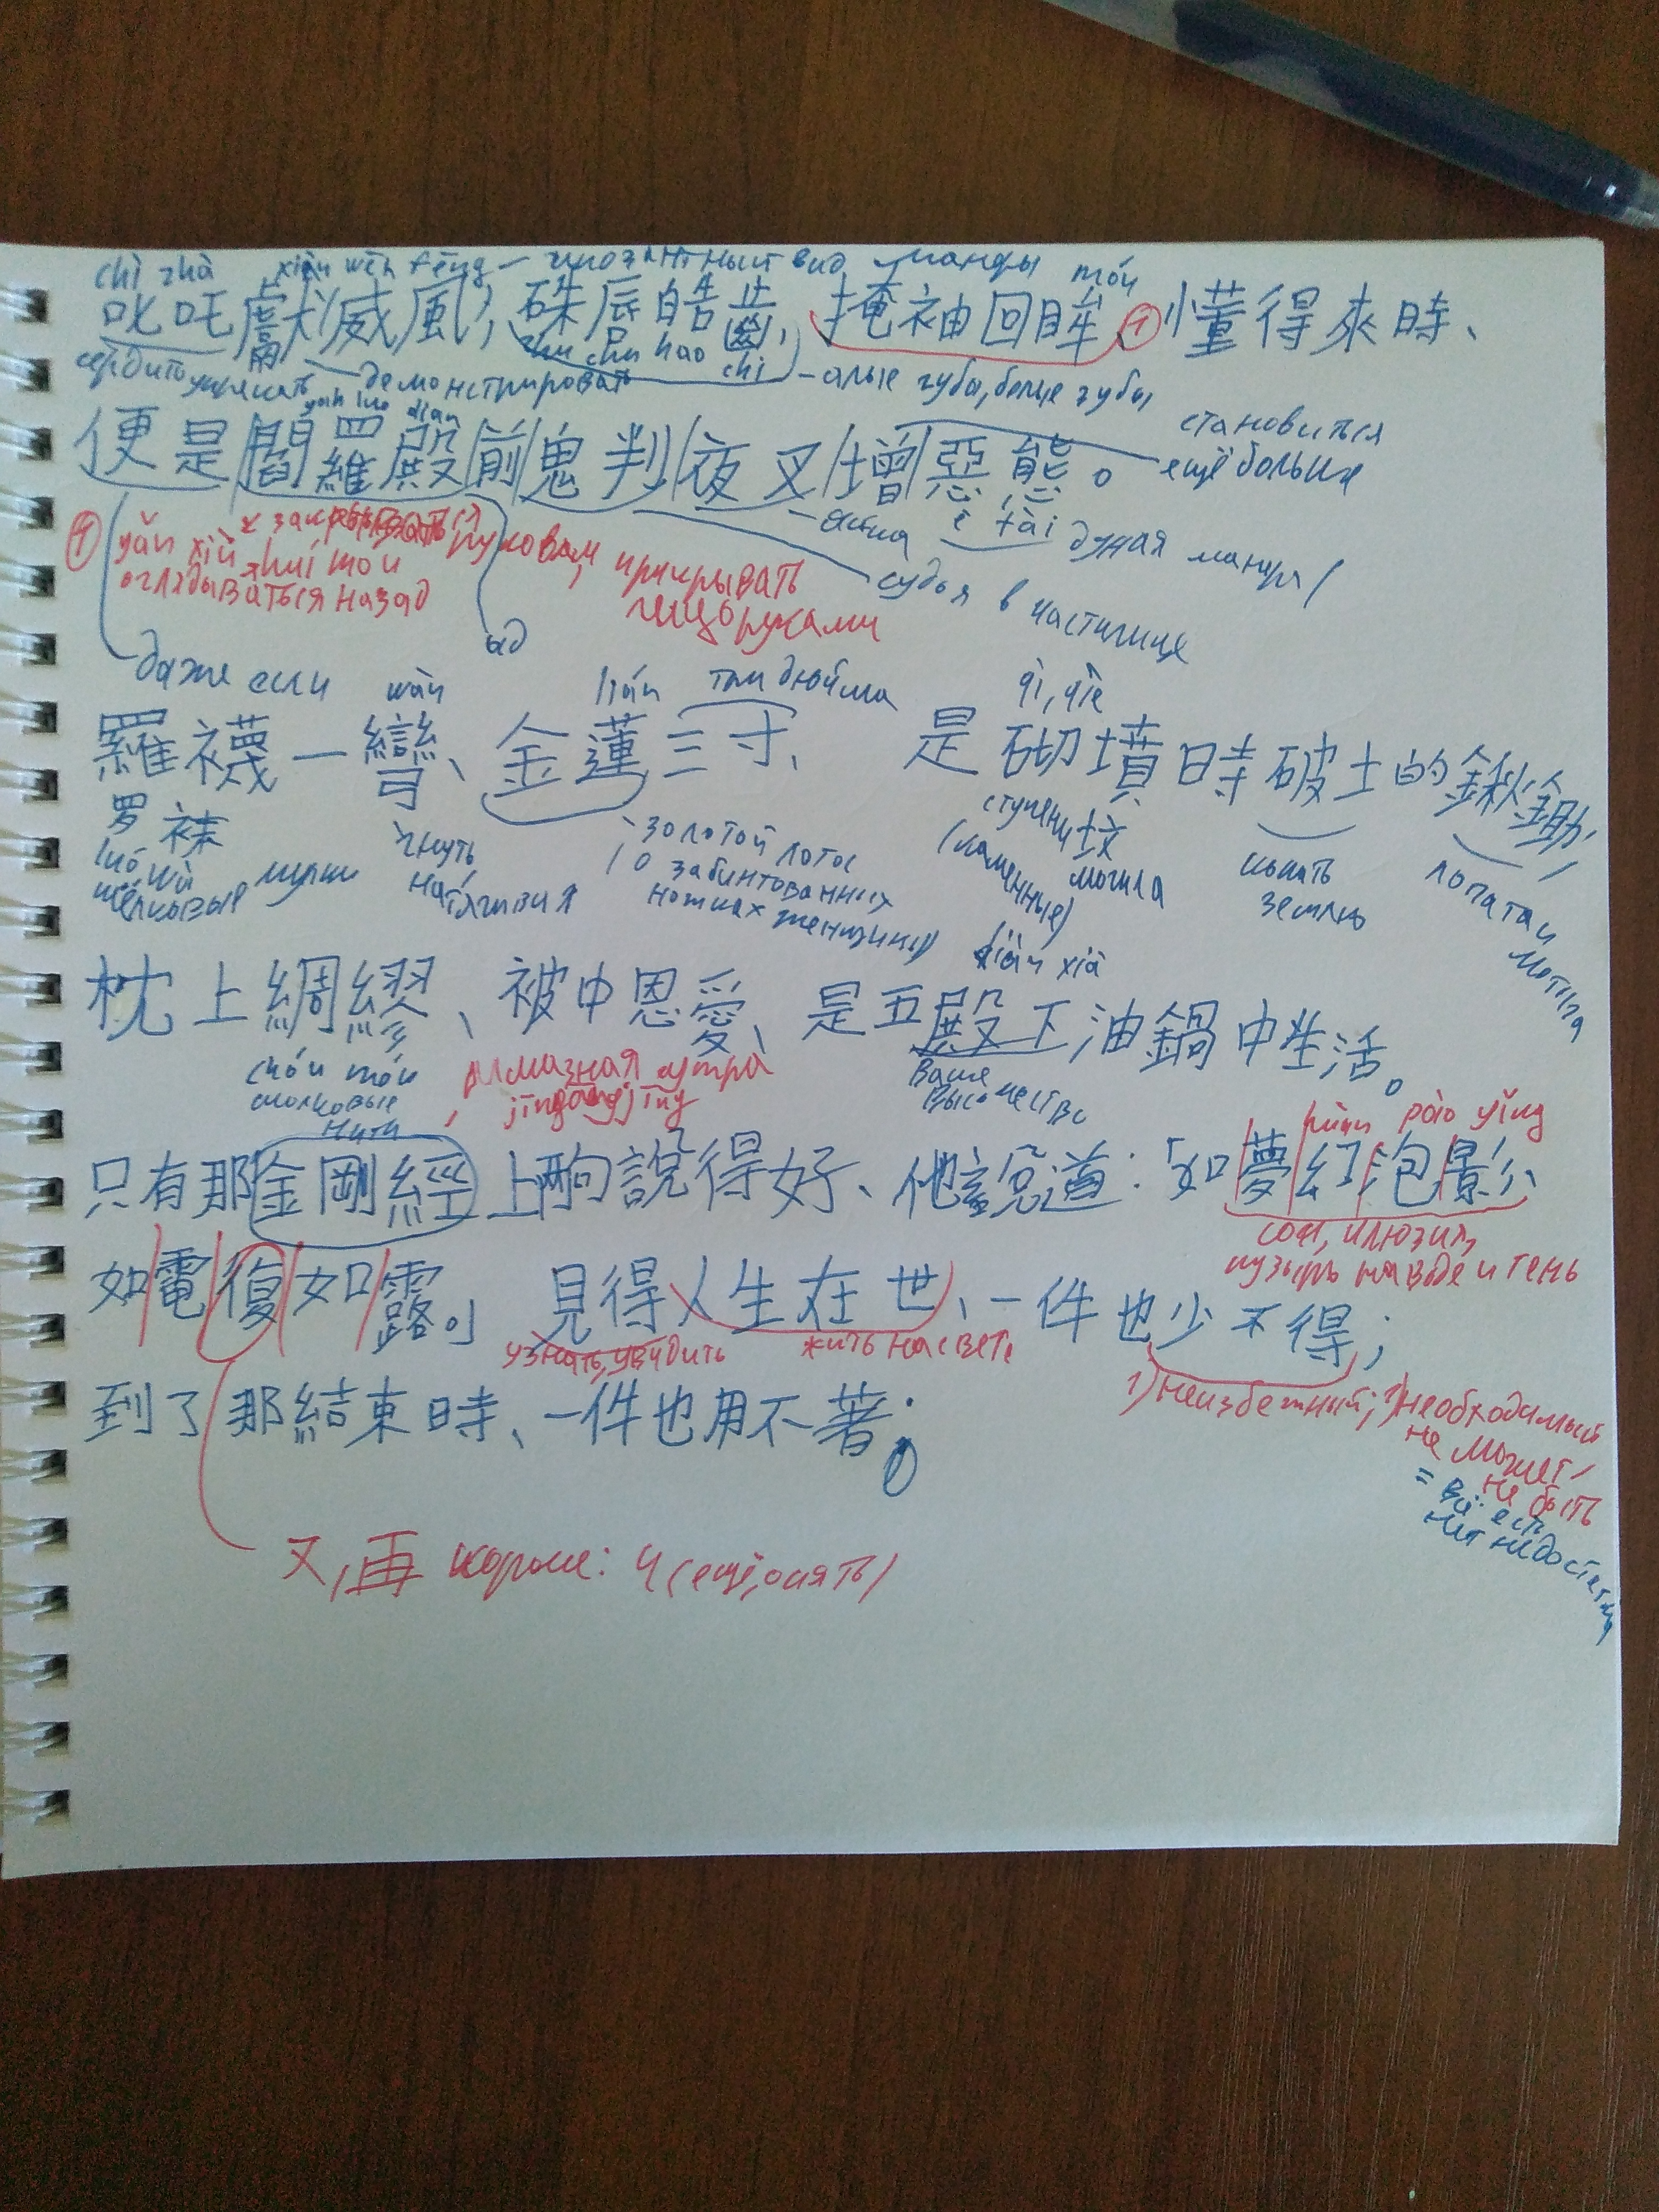 chì zhà xiàn wēi fēng – вид манеры móu
叱吒獻威風, 硃唇皓齒, 掩袖回眸、① 懂得來時、
сердито – демонстрировать zhu chu hao chi – алые губы, белые зубы
yan luo dian становиться ещё больше
便是閻羅殿前鬼判夜叉增惡態。
è tài дурная манера
① yǎn xiù huí móu рукавом, прикрывать лицо руками
оглядываться назад
судья в
ад
даже если wān lián три дюйма qì, qiè
羅襪一彎、金蓮三寸、 是砌墳時破土的鍬鋤,
罗袜 гнуть, золотой лотос ступени 坟 копать землю лопата и мотыга
luó wà натягивая / о забинтованных ножках женщины) (каменные) могила
шёлковые diàn xià
枕上綢繆、被中恩愛、是五殿下油鍋中生活。
chóu móu Алмазная сутра Ваше Высочество
шёлковые нити jīngāngjīng
huàn pào yǐng
只有那金剛經上兩句說得好、他說道:「如夢幻泡影、
сон, иллюзия, пузырь на воде и тень
如電復如露。」 見得人生在世、一件也少不得;
узнать, увидить жить на свете 1) неизбежный; 2) необходимый
не может не быть
= всё есть нет недостатка
到了那結束時、一件也用不著。
又, 再 короче: и (ещё, опять)